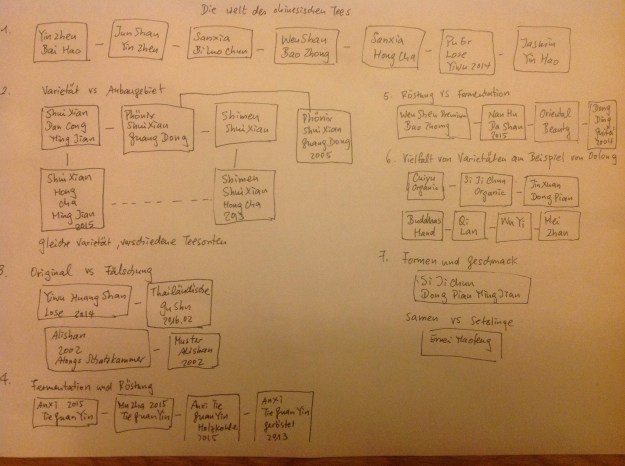 Die Welt der chinesischen Tees
1.
Yin Zhen
Bai Hao
Jun Shan
Yin Zhen
Sanxia
Bi Luo Chun
Wen Shan
Bao Zhong
Sanxia
Hong Cha
Pu Er
Lose
Yiwu 2014
Jasmin
Yin Hao
2. Varietät vs Anbaugebiet
Shui Xian
Dan Cong
Ming Jian
Phönix
Shui Xian
Guang Dong
Shimen
Shui Xian
Phönix
Shui Xian
Guang Dong
2005
Shui Xian
Hong
Cha
Ming Jian
2015
Shimen
Shui Xian
Hong Cha
gleiche Varietät, verschiedene Teesorten
3. Original vs Fälschung
Yiwu Huang Shan
Lose 2014
Thailändische
Alishan
2002
Atongs Schatzkammer
Muster
Alishan
2002
4. Fermentation und Röstung
Anxi 2015
Tie Guan Yin
Mu Zha 2015
Tie Guan Yin
Anxi Tie
Guan Yin
Holzkohle
2015
Anxi
Tie Guan Yin
geröstet
2013
5. Röstung vs Fermentation
Wen Shan Premium
Bao Zhong
Nan Hu
Da Shan
2015
Oriental
Beauty
Dong
Ding
2004
6. Vielfalt von Varietäten am Beispiel von Oolong
Cuiyu
Organic
Si Ji Chun
Organic
Jin Xuan
Dong Pian
Buddhas
Hand
Qi
Lan
Wu Yi
Mei
Zhan
7. Formen und Geschmack
Si Ji Chun
Dong Pian Ming Jian
Samen vs Setzlinge
Emei Maofeng